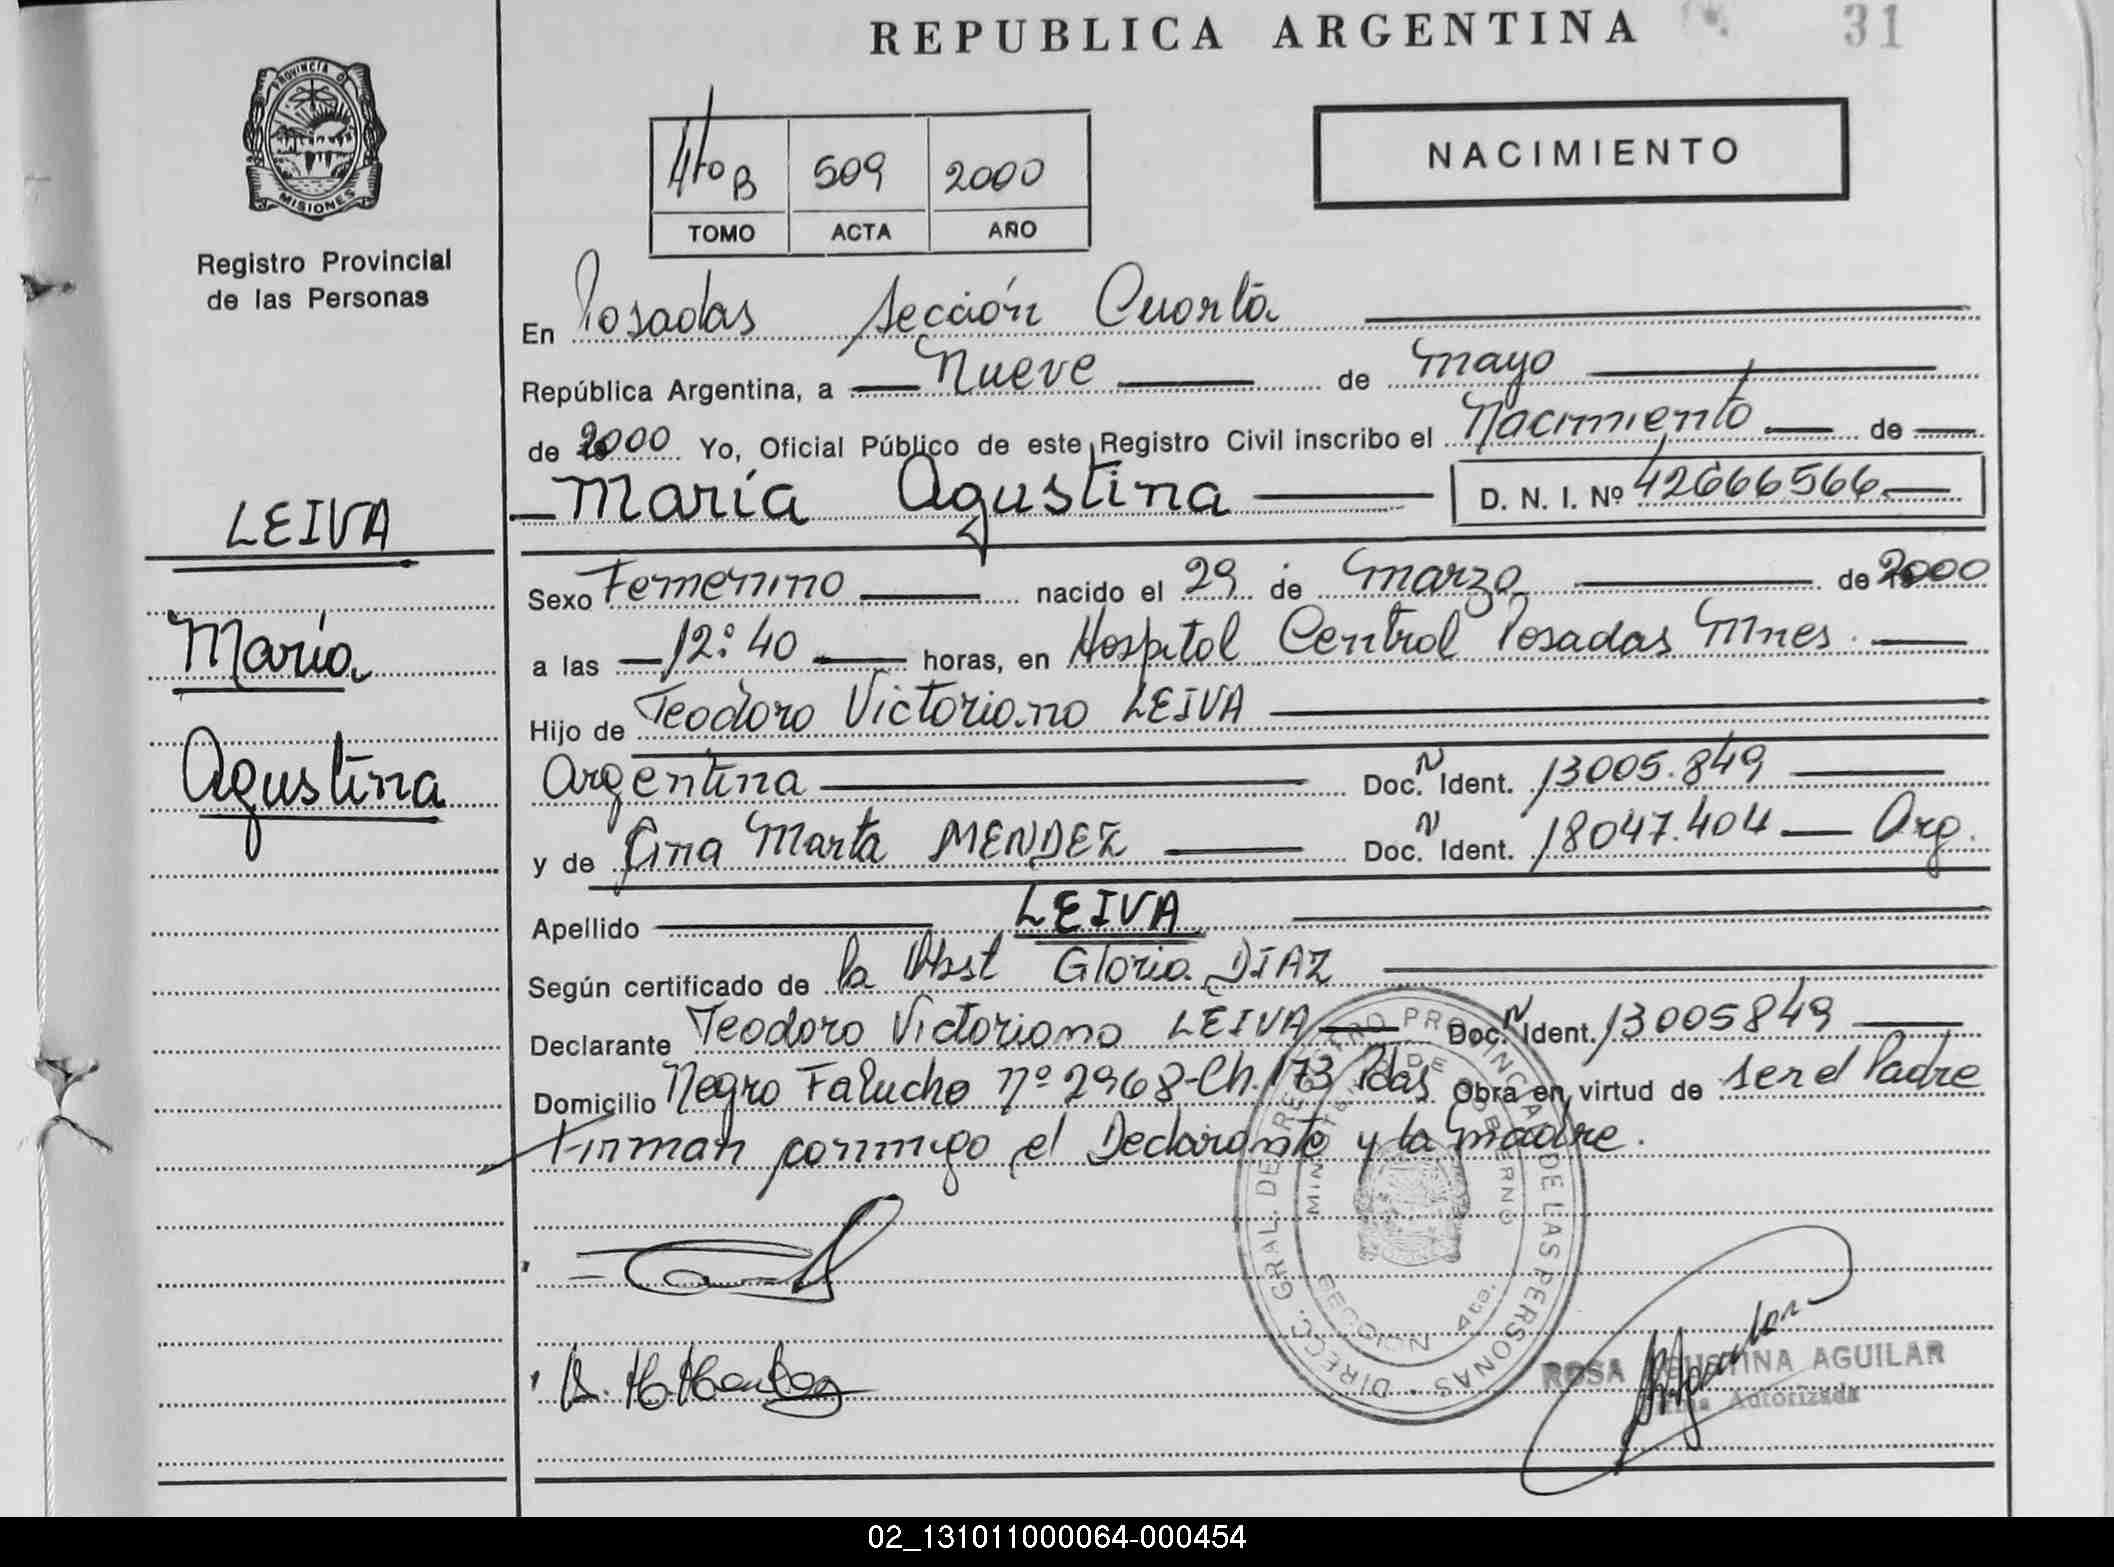 REPUBLICA ARGENTINA
31
PROVINCIA D
MISIONES
Registro Provincial
de las Personas
4to B 509 2000
TOMO ACTA AÑO
NACIMIENTO
En Posadas Sección Cuarta
República Argentina, a Nueve de Mayo
de 2000 Yo, Oficial Público de este Registro Civil inscribo el Nacimiento de
María Agustina D. N. I. Nº 42666566
LEIVA
María
Agustina
Sexo Femenino nacido el 29 de Marzo de 2000
a las 12:40 horas, en Hospital Central Posadas Mnes.
Hijo de Teodoro Victoriano LEIVA
Argentina Doc. N Ident. 13005.849
y de Ana Marta MENDEZ Doc. N Ident. 18047.404 Arg.
Apellido LEIVA
Según certificado de la Obst Gloria DIAZ
Declarante Teodoro Victoriano LEIVA Doc. N Ident. 13005849
Domicilio Negro Falucho Nº 2968-Ch. 173 Pdas Obra en virtud de ser el Padre
Firman conmigo el Declarante y la madre.
DIREC. GRAL. DE REGISTRO PROVINCIAL DE LAS PERSONAS
MINISTERIO DE GOBIERNO
SECCION 4ta.
ROSA AGUSTINA AGUILAR
Firma Autorizada
02_131011000064-000454